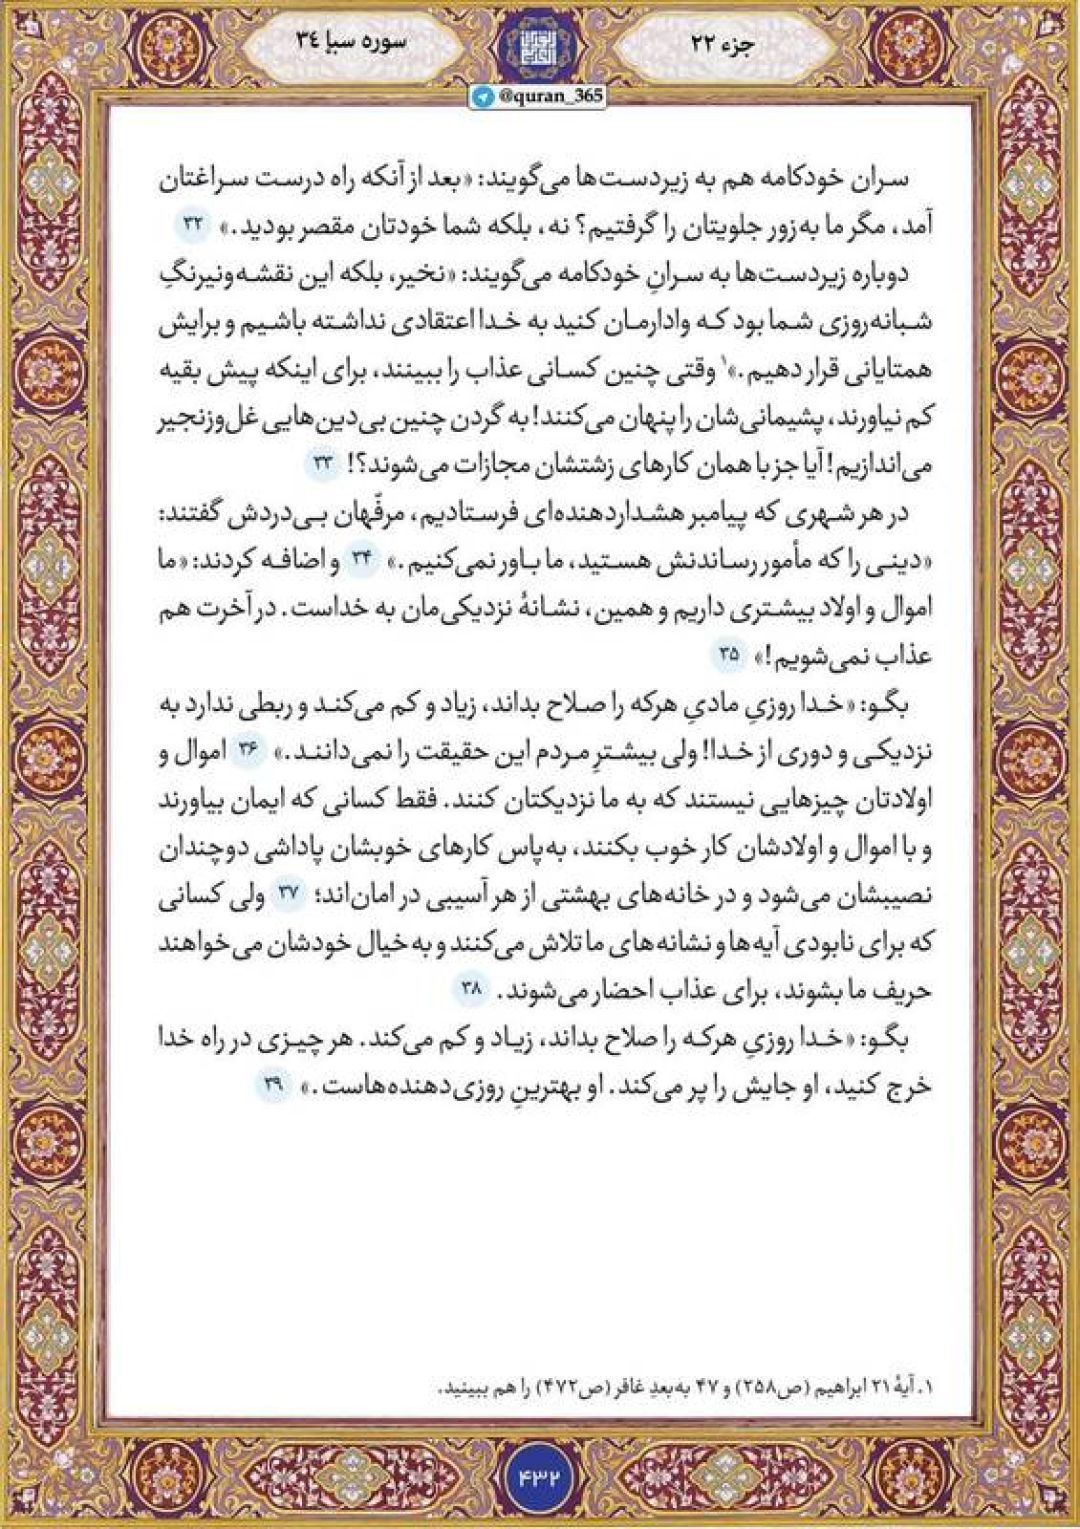 جزء ۲۲
سوره سبإ ۳٤
@quran_365
سران خودکامه هم به زیردست‌ها می‌گویند: «بعد از آنکه راه درست سراغتان
آمد، مگر ما به‌زور جلویتان را گرفتیم؟ نه، بلکه شما خودتان مقصر بودید.» ۳۲
دوباره زیردست‌ها به سرانِ خودکامه می‌گویند: «نخیر، بلکه این نقشه‌ونیرنگِ
شبانه‌روزی شما بود که وادارمان کنید به خدا اعتقادی نداشته باشیم و برایش
همتایانی قرار دهیم.»۱ وقتی چنین کسانی عذاب را ببینند، برای اینکه پیش بقیه
کم نیاورند، پشیمانی‌شان را پنهان می‌کنند! به گردن چنین بی‌دین‌هایی غل‌وزنجیر
می‌اندازیم! آیا جز با همان کارهای زشتشان مجازات می‌شوند؟! ۳۳
در هر شهری که پیامبر هشداردهنده‌ای فرستادیم، مرفّهان بی‌دردش گفتند:
«دینی را که مأمور رساندنش هستید، ما باور نمی‌کنیم.» ۳۴ و اضافه کردند: «ما
اموال و اولاد بیشتری داریم و همین، نشانهٔ نزدیکی‌مان به خداست. در آخرت هم
عذاب نمی‌شویم!» ۳۵
بگو: «خدا روزیِ مادیِ هرکه را صلاح بداند، زیاد و کم می‌کند و ربطی ندارد به
نزدیکی و دوری از خدا! ولی بیشترِ مردم این حقیقت را نمی‌دانند.» ۳۶ اموال و
اولادتان چیزهایی نیستند که به ما نزدیکتان کنند. فقط کسانی که ایمان بیاورند
و با اموال و اولادشان کار خوب بکنند، به‌پاس کارهای خوبشان پاداشی دوچندان
نصیبشان می‌شود و در خانه‌های بهشتی از هر آسیبی در امان‌اند؛ ۳۷ ولی کسانی
که برای نابودی آیه‌ها و نشانه‌های ما تلاش می‌کنند و به خیال خودشان می‌خواهند
حریف ما بشوند، برای عذاب احضار می‌شوند. ۳۸
بگو: «خدا روزیِ هرکه را صلاح بداند، زیاد و کم می‌کند. هر چیزی در راه خدا
خرج کنید، او جایش را پر می‌کند. او بهترینِ روزی‌دهنده‌هاست.» ۳۹
۱. آیهٔ ۲۱ ابراهیم (ص۲۵۸) و ۴۷ به‌بعدِ غافر (ص۴۷۲) را هم ببینید.
۴۳۲